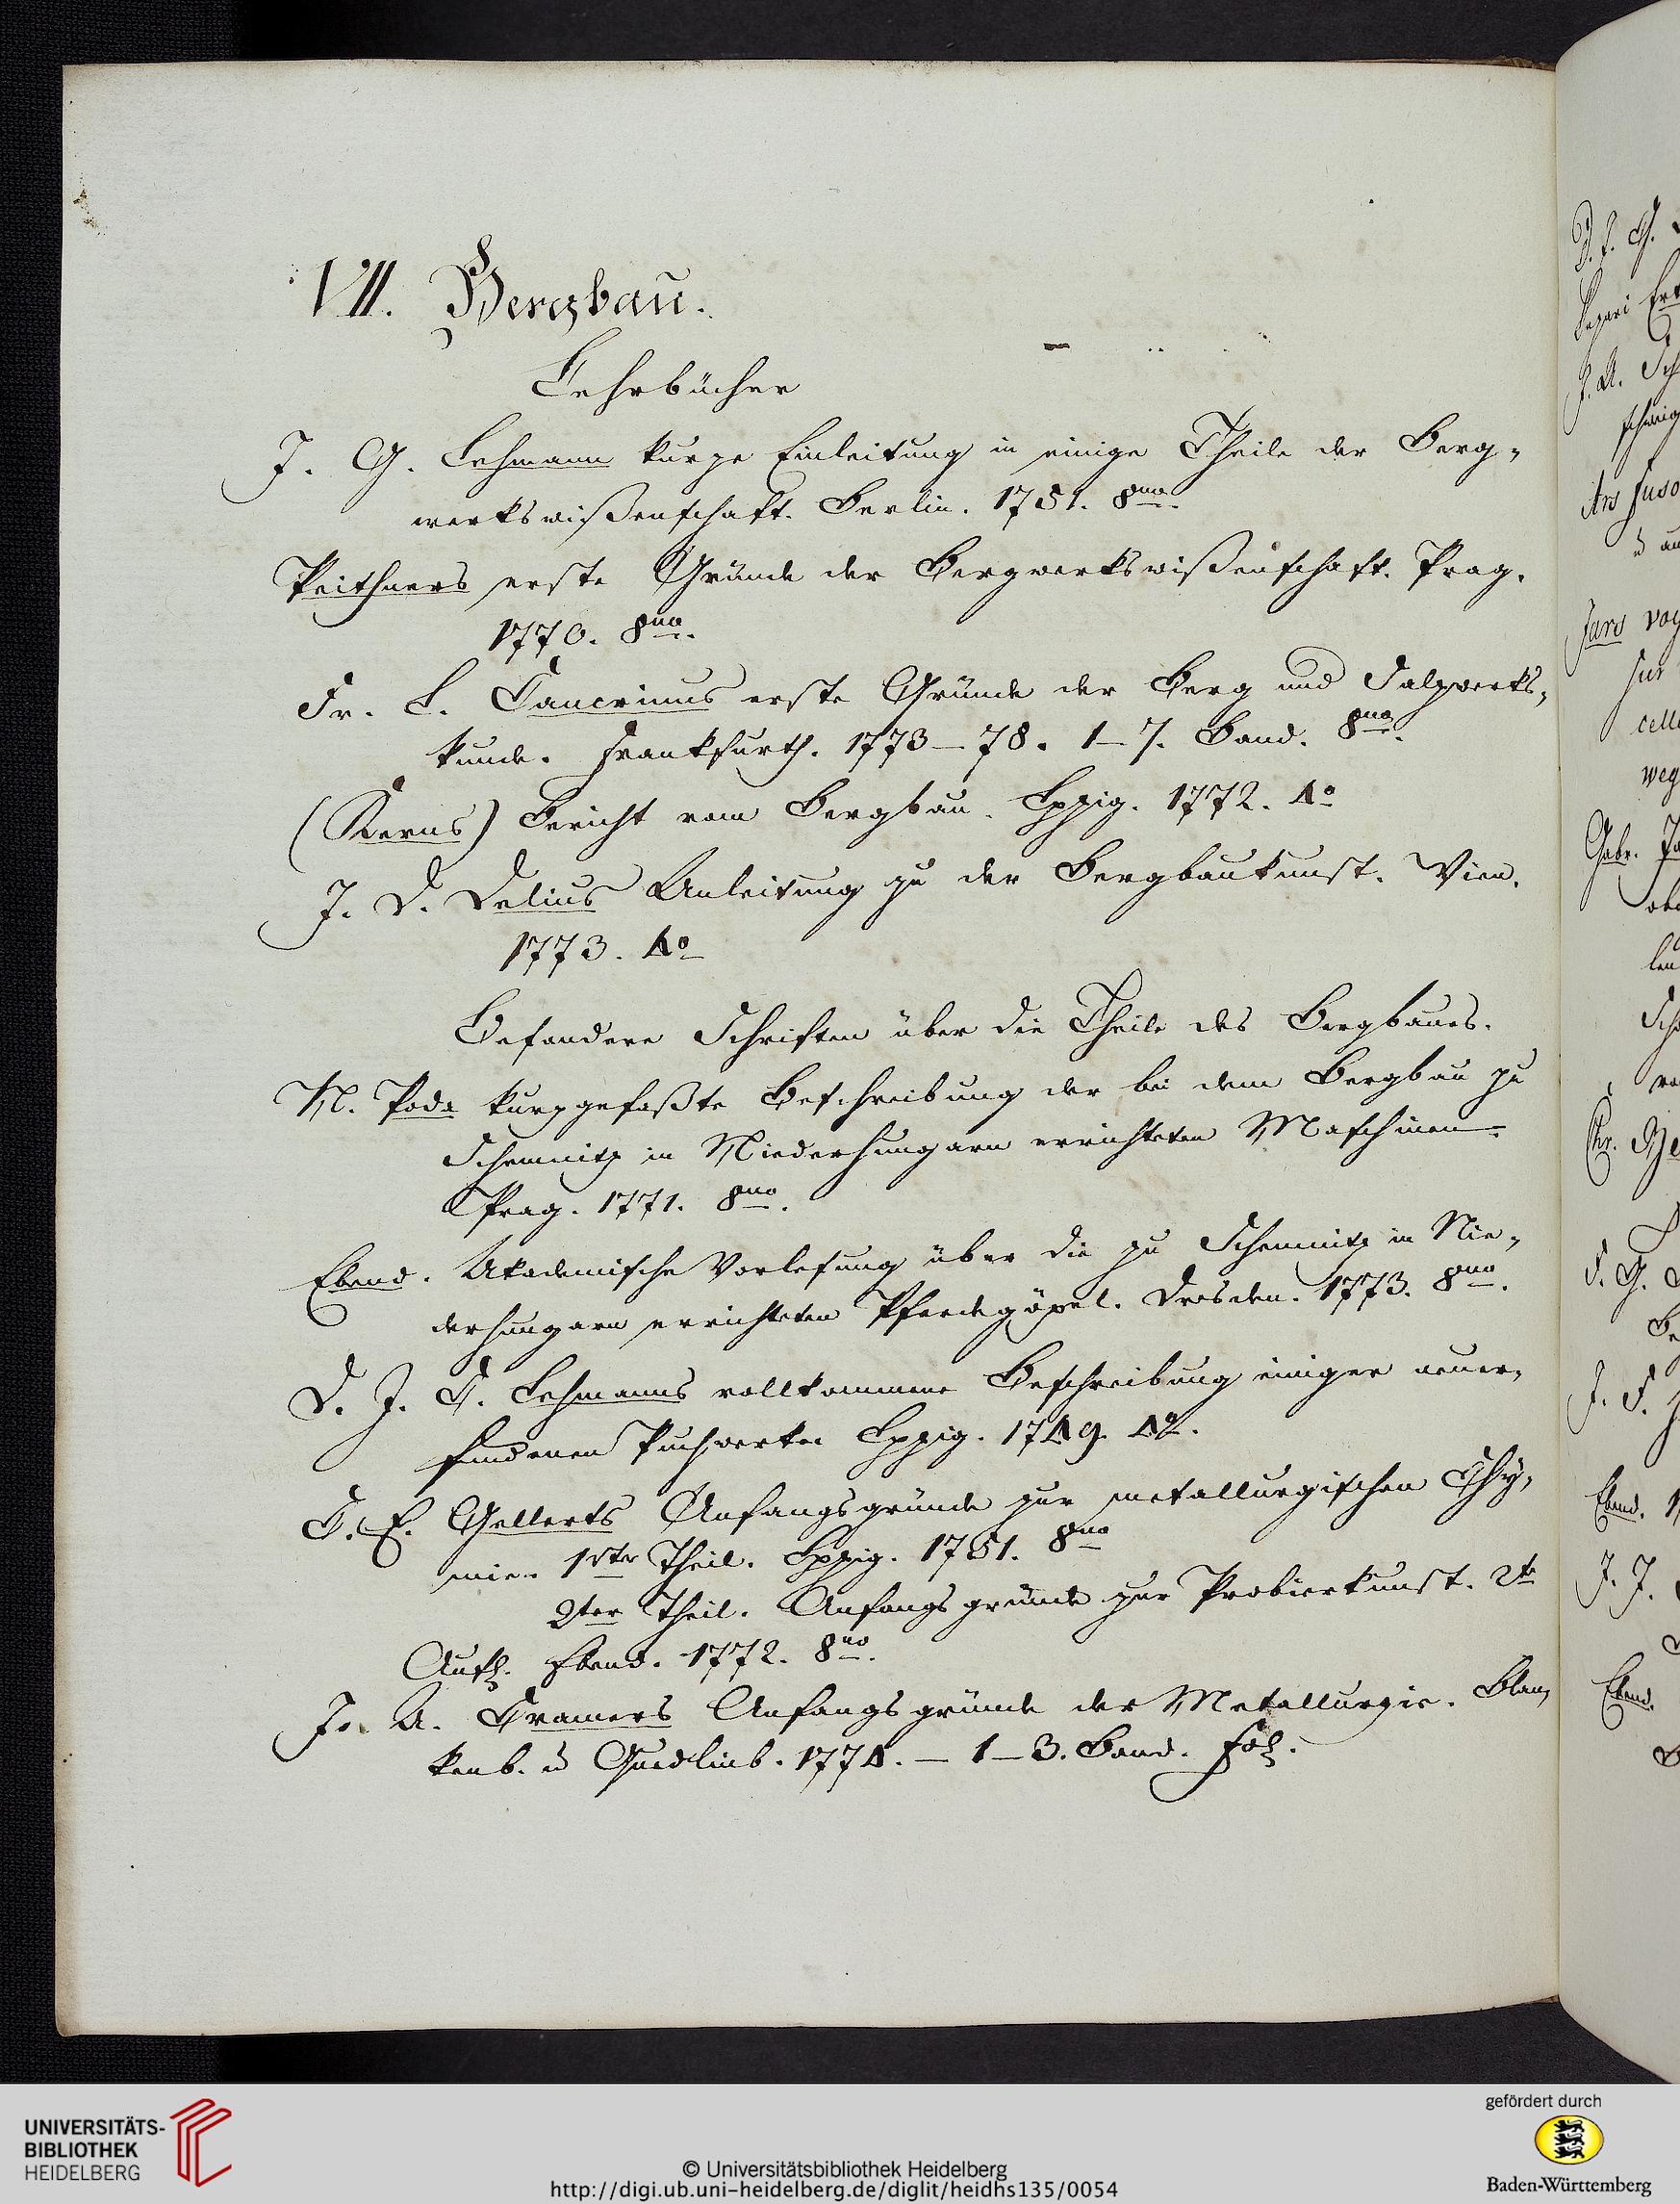 VII. Bergbau.
Lehrbücher
J. G. Lehmann kurze Einleitung in einige Theile der Berg-
werkswißenschaft. Berlin. 1751. 8vo.
Peithners erste Gründe der Bergwerkswißenschaft. Prag.
1770. 8vo.
Fr. L. Cancrinus erste Gründe der Berg und Salzwerks-
kunde. Frankfurth. 1773–78. 1–7. Band. 8vo.
(Kerns) Bericht vom Bergbau. Lpzig. 1772. 4o
J. D. Delius Anleitung zu der Bergbaukunst. Wien.
1773. 4o
Besondere Schriften über die Theile des Bergbaues.
N. Poda kurzgefaßte Beschreibung der bei dem Bergbau zu
Schemnitz in Niederhungarn errichteten Maschinen.
Prag. 1771. 8vo.
Ebend. Akademische Vorlesung über die zu Schemnitz in Nie-
derhungarn errichteten Pferdegöpel. Dresden. 1773. 8vo.
D. J. C. Lehmanns vollkommene Beschreibung einiger neuer-
fundenen Puchwerke Lpzig. 1749. 4o.
C. E. Gellerts Anfangsgründe zur metallurgischen Chy-
mie. 1ster Theil. Lpzig. 1751. 8vo
2ter Theil. Anfangsgründe zur Probierkunst. 2te
Aufl. Ebend. 1772. 8vo.
J. A. Cramers Anfangsgründe der Metallurgie. Blan-
kenb. u Quedlinb. 1774. – 1–3. Band. Fol.
D. J. G.
J. A. Sch
Ars fuso
Jars voy
sur
cell
weg
Gabr. Ja
Ebend.
J. J.
Ebend.
UNIVERSITÄTS-
BIBLIOTHEK
HEIDELBERG
© Universitätsbibliothek Heidelberg
http://digi.ub.uni-heidelberg.de/diglit/heidhs135/0054
gefördert durch
Baden-Württemberg